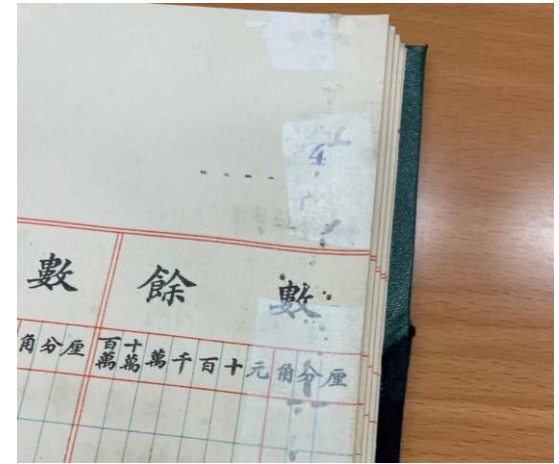 4
數 餘 數
角分厘 百萬 十萬 萬千百十元角分厘